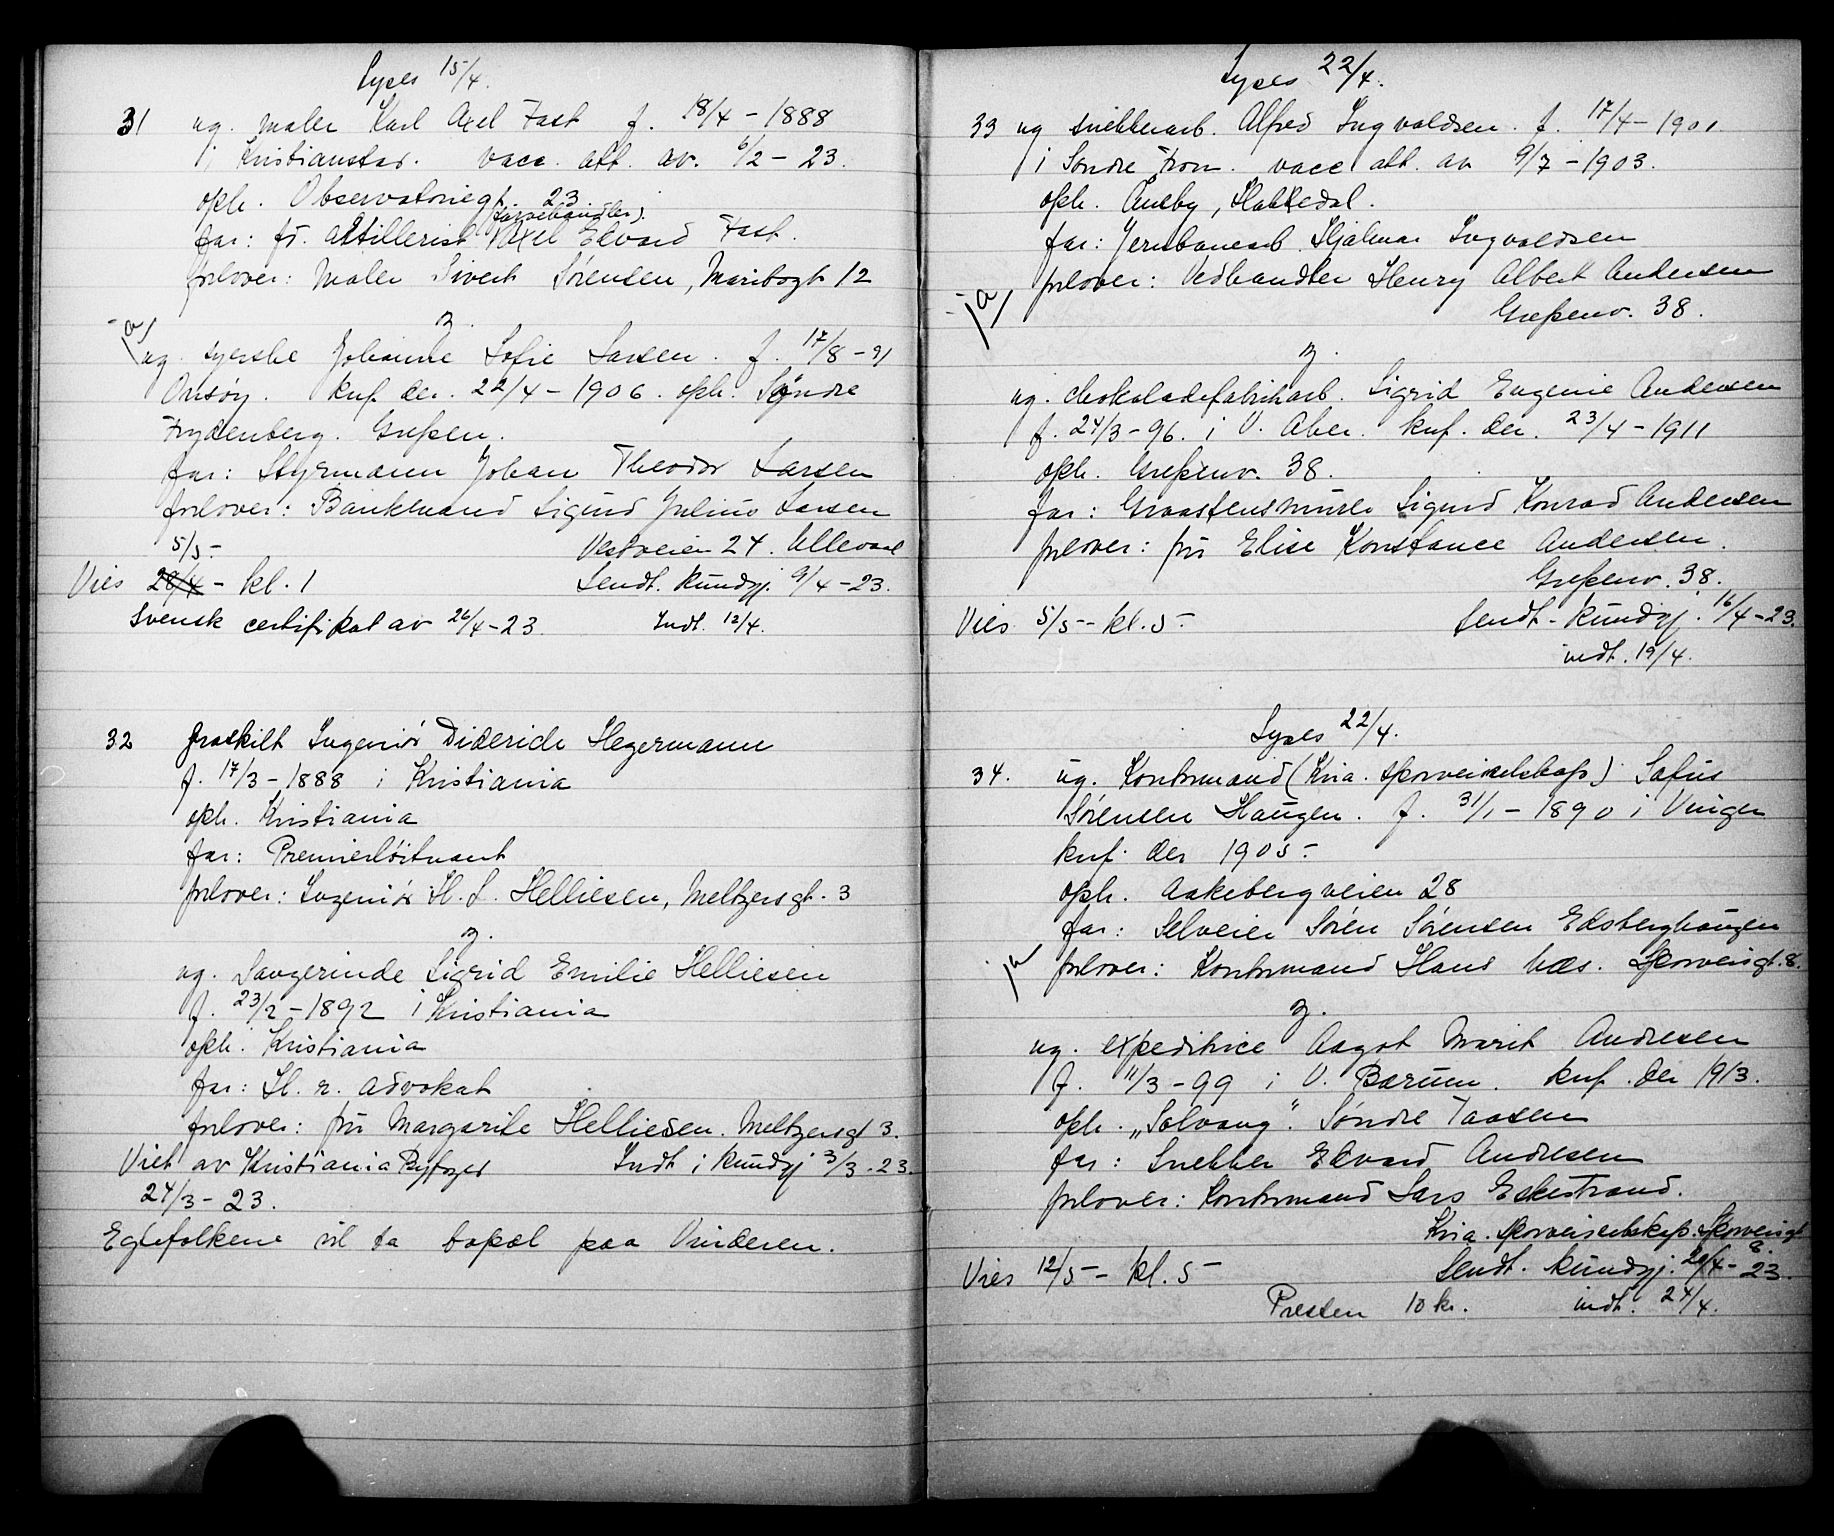 Lyses 15/4.
31 ug. maler Karl Axel Fast f. 18/4 - 1888
i Kristianstad. vacc. att. av. 6/2 - 23.
oph. Observatoriegt. 23
(Farvehandler).
far: fv. artillerist Axel Edvard Fast.
forlover: Maler Sivert Sørensen, Maribogt 12
ja
z.
ug. syerske Johanne Sofie Larsen. f. 17/8 - 91
Onsøy. knf. der. 22/4 - 1906. oph. Søndre
Frydenberg. Grefsen.
far: Styrmann Johan Theodor Larsen
forlover: Bankmand Sigurd Julius Larsen
5/5 - Vestveien 24. Ullevaal
Vies 28/4 - kl. 1 Sendt. kundgj. 9/4 - 23.
Svensk certifikat av 26/4 - 23. Indt. 12/4.
32 fraskilt Ingeniør Diderich Hegermann
f. 17/3 - 1888 i Kristiania
oph. Kristiania
far: Premierløitnant
forlover: Ingeniør H. S. Helliesen, Meltzersgt. 3
z.
ug. Sangerinde Sigrid Emilie Helliesen
f. 23/2 - 1892 i Kristiania
oph. Kristiania
far: H. r. advokat
forlover: fru Margarite Helliesen. Meltzersgt 3.
Viet av Kristiania Byfoged Indt i kundgj 3/3 - 23.
24/3 - 23.
Egtefolkene vil ta bopæl paa Vinderen.
Lyses 22/4.
33 ug snekkerarb. Alfred Ingvaldsen. f. 17/4 - 1901
i Søndre Fron. vacc att. av 9/7 - 1903.
oph. Aneby, Hakkedal.
far: Jernbanearb. Hjalmar Ingvaldsen
forlover: Vedhandler Henry Albert Andersen
ja Grefsenv. 38.
z.
ug. chokoladefabrikarb. Sigrid Eugenie Andersen
f. 24/3 - 96. i V. Aker. knf. der. 23/4 - 1911
oph. Grefsenv. 38.
far: Graastensmurer Sigurd Konrad Andersen
forlover: fru Elise Konstance Andersen.
Grefsenv. 38.
Vies 5/5 - kl. 5 - Sendt - kundgj. 16/4 - 23.
indt. 19/4.
Lyses 22/4.
34. ug. Kontormand (Kria. sporveiselskap) Sofus
Sørensen Haugen. f. 31/1 - 1890 i Vinger
knf. der 1905 -
oph. Aakebergveien 28
far: Selveier Søren Sørensen Edsberghaugen
ja forlover: Kontormand Hans Næs. Sporveisgt. 8.
z.
ug. expeditrice Aagot Marit Andresen
f. 11/3 - 99 i V. Bærum. knf. der 1913.
oph. „Solvang“. Søndre Taasen
far: Snekker Edvard Andresen
forlover: Kontormand Lars Ekestrand.
Kria. sporveiselskap. Sporveisgt
8.
Vies 12/5 - kl. 5 - Sendt. kundgj. 20/4 - 23.
Presten 10 kr. indt. 24/4.